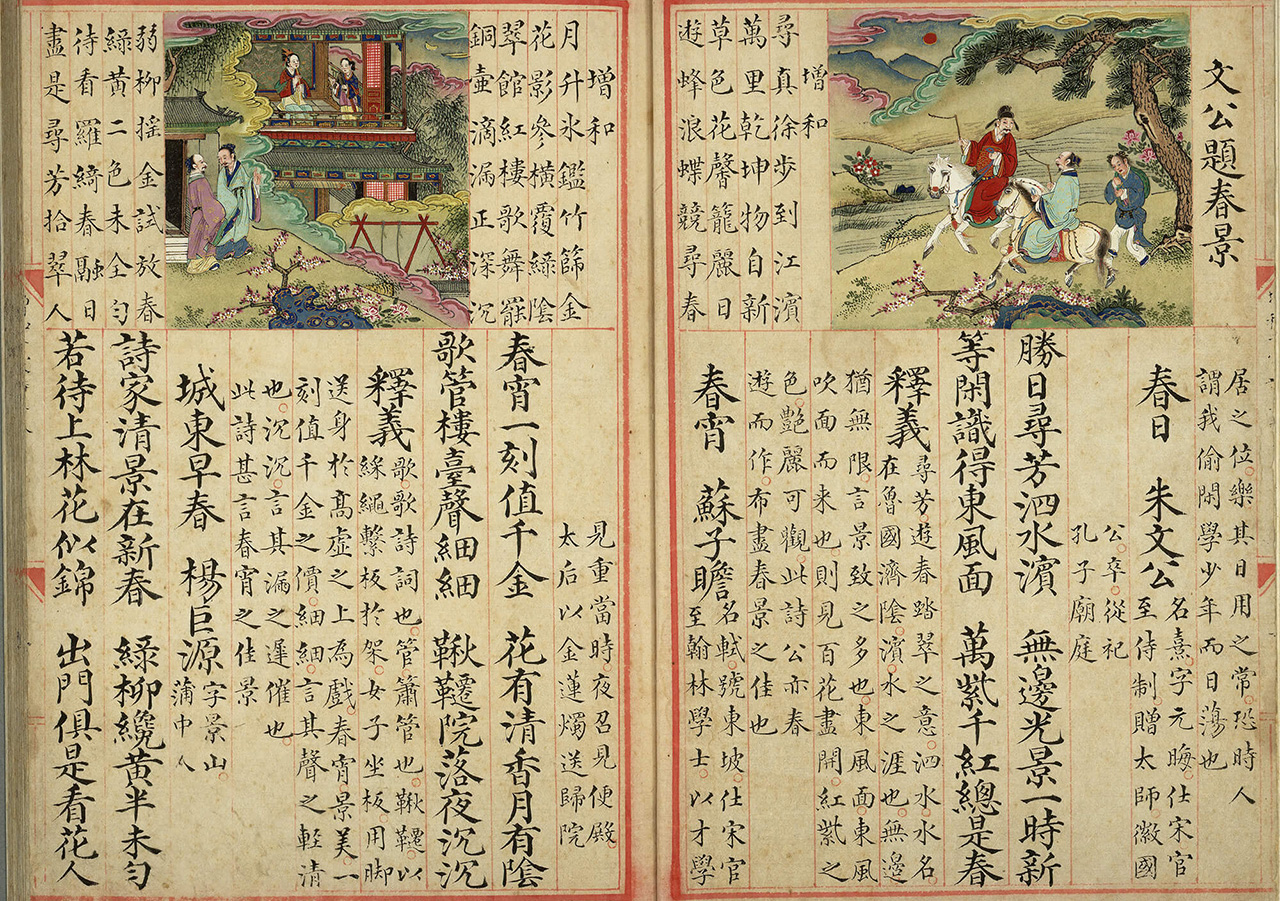 文公題春景
增和
尋真徐步到江濱
萬里乾坤物自新
草色花馨籠麗日
遊蜂浪蝶競尋春
居之位。樂其日用之常。恐時人
謂我偷閑學少年而日蕩也
春日 朱文公
名熹。字元晦。仕宋官
至侍制。贈太師徽國
公。卒。從祀
孔子廟庭
勝日尋芳泗水濱 無邊光景一時新
等閑識得東風面 萬紫千紅總是春
釋義
尋芳。遊春踏翠之意。泗水。水名
在魯國濟陰。濱。水之涯也。無邊
猶無限。言景致之多也。東風面。東風
吹面而来也。則見百花盡開。紅紫之
色。艷麗可觀。此詩公亦春
遊而作。布盡春景之佳也
春宵 蘇子瞻
名軾。號東坡。仕宋官
至翰林學士。以才學
增和
月升氷鑑竹篩金
花影參橫覆綠陰
翠館紅樓歌舞罷
銅壺滴漏正深沉
弱柳搖金試放春
綠黃二色未全勻
待看羅綺春融日
盡是尋芳拾翠人
見重當時夜召見便殿
太后以金蓮燭送歸院
春宵一刻值千金 花有清香月有陰
歌管樓臺聲細細 鞦韆院落夜沉沉
釋義
歌。歌詩詞也。管。簫管也。鞦韆。以
綵繩繫板於架。女子坐板。用脚
送身於高虛之上為戲。春宵。景美。一
刻值千金之價。細細。言其聲之輕清
也。沉沉。言其漏之遲催也。
此詩甚言春宵之佳景
城東早春 楊巨源
字景山。
蒲中人
詩家清景在新春 綠柳纔黃半未勻
若待上林花似錦 出門俱是看花人